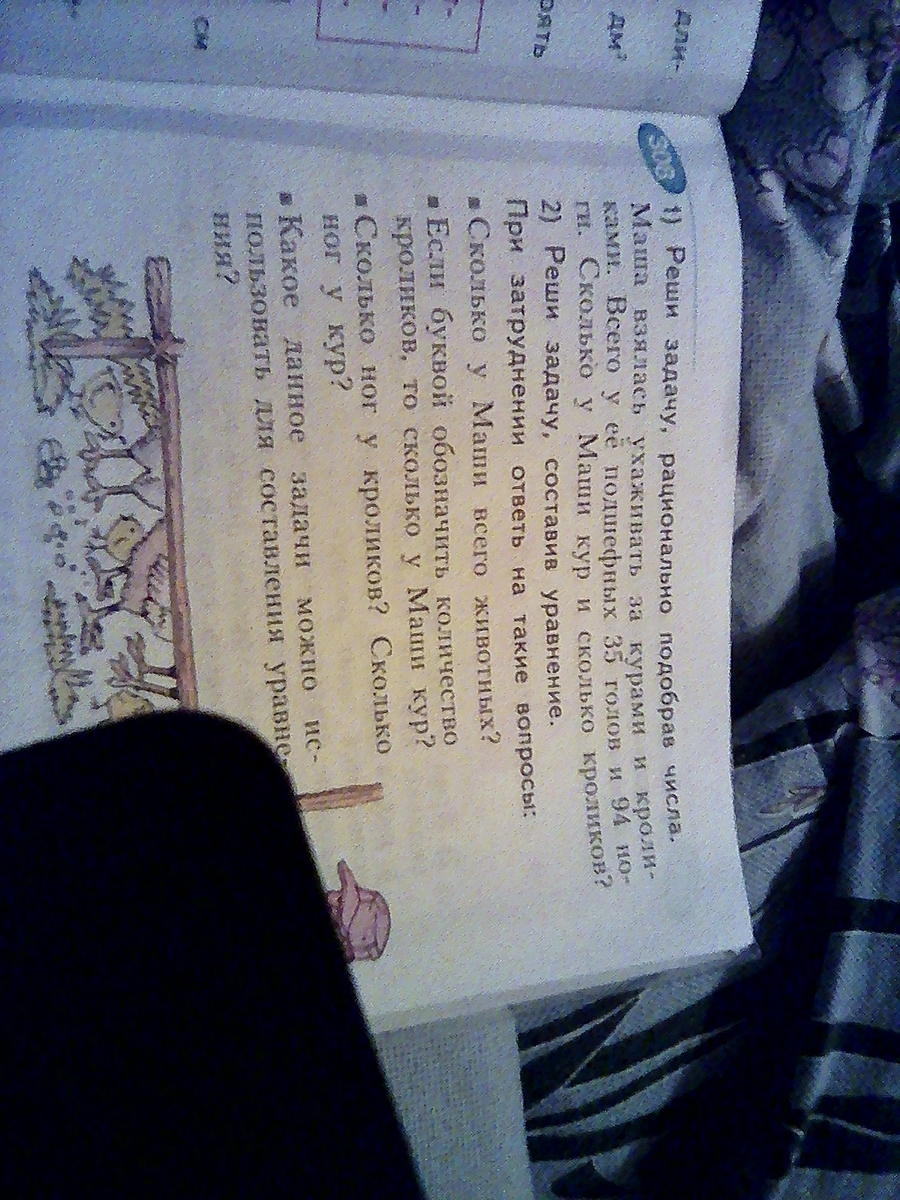 дли-
дм²
оять
си
308
1) Реши задачу, рационально подобрав числа.
Маша взялась ухаживать за курами и кроли-
ками. Всего у её подшефных 35 голов и 94 но-
ги. Сколько у Маши кур и сколько кроликов?
2) Реши задачу, составив уравнение.
При затруднении ответь на такие вопросы:
▪ Сколько у Маши всего животных?
▪ Если буквой обозначить количество
кроликов, то сколько у Маши кур?
▪ Сколько ног у кроликов? Сколько
ног у кур?
▪ Какое данное задачи можно ис-
пользовать для составления уравне-
ния?